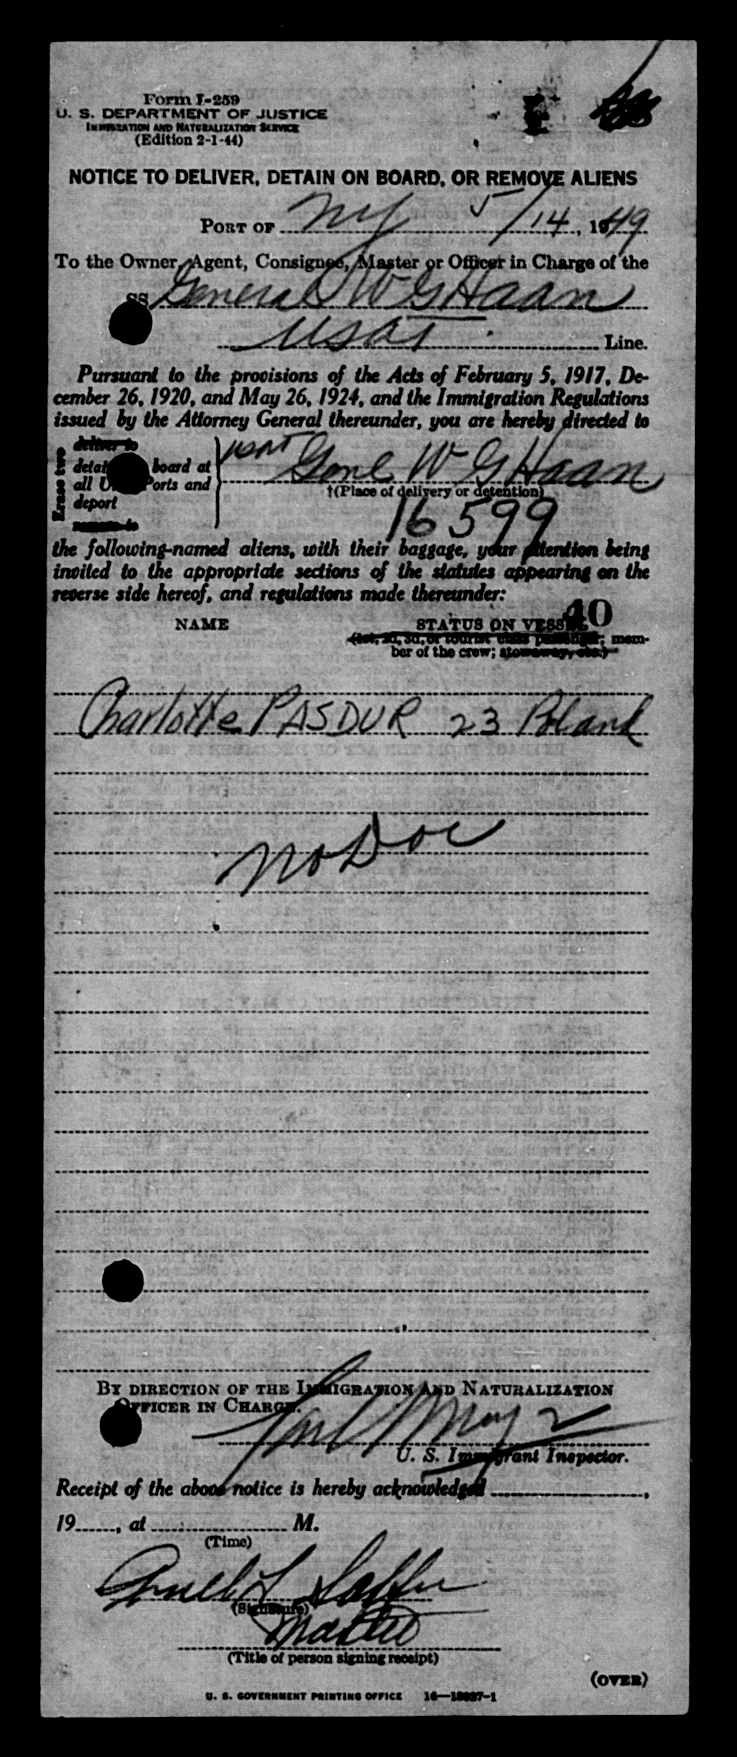 Form I-259
U. S. DEPARTMENT OF JUSTICE
IMMIGRATION AND NATURALIZATION SERVICE
(Edition 2-1-44)
NOTICE TO DELIVER, DETAIN ON BOARD, OR REMOVE ALIENS
PORT OF NY 5/14, 1949
To the Owner, Agent, Consignee, Master or Officer in Charge of the
SS General W G Haan
USAT Line.
Pursuant to the provisions of the Acts of February 5, 1917, De-
cember 26, 1920, and May 26, 1924, and the Immigration Regulations
issued by the Attorney General thereunder, you are hereby directed to
Erase two
deliver to
detain board at
all U. Ports and
deport
remove to
USAT Genl W G Haan
†(Place of delivery or detention)
16599
the following-named aliens, with their baggage, your attention being
invited to the appropriate sections of the statutes appearing on the
reverse side hereof, and regulations made thereunder:
40
NAME STATUS ON VESSEL
(1st, 2d, 3d, or tourist class passenger; mem-
ber of the crew; stowaway, etc.)
Charlotte PASDUR 23 Poland
No Doc
BY DIRECTION OF THE IMMIGRATION AND NATURALIZATION
OFFICER IN CHARGE.
U. S. Immigrant Inspector.
Receipt of the above notice is hereby acknowledged
19 , at M.
(Time)
(Signature)
Master
(Title of person signing receipt)
(OVER)
U. S. GOVERNMENT PRINTING OFFICE 16—18937-1